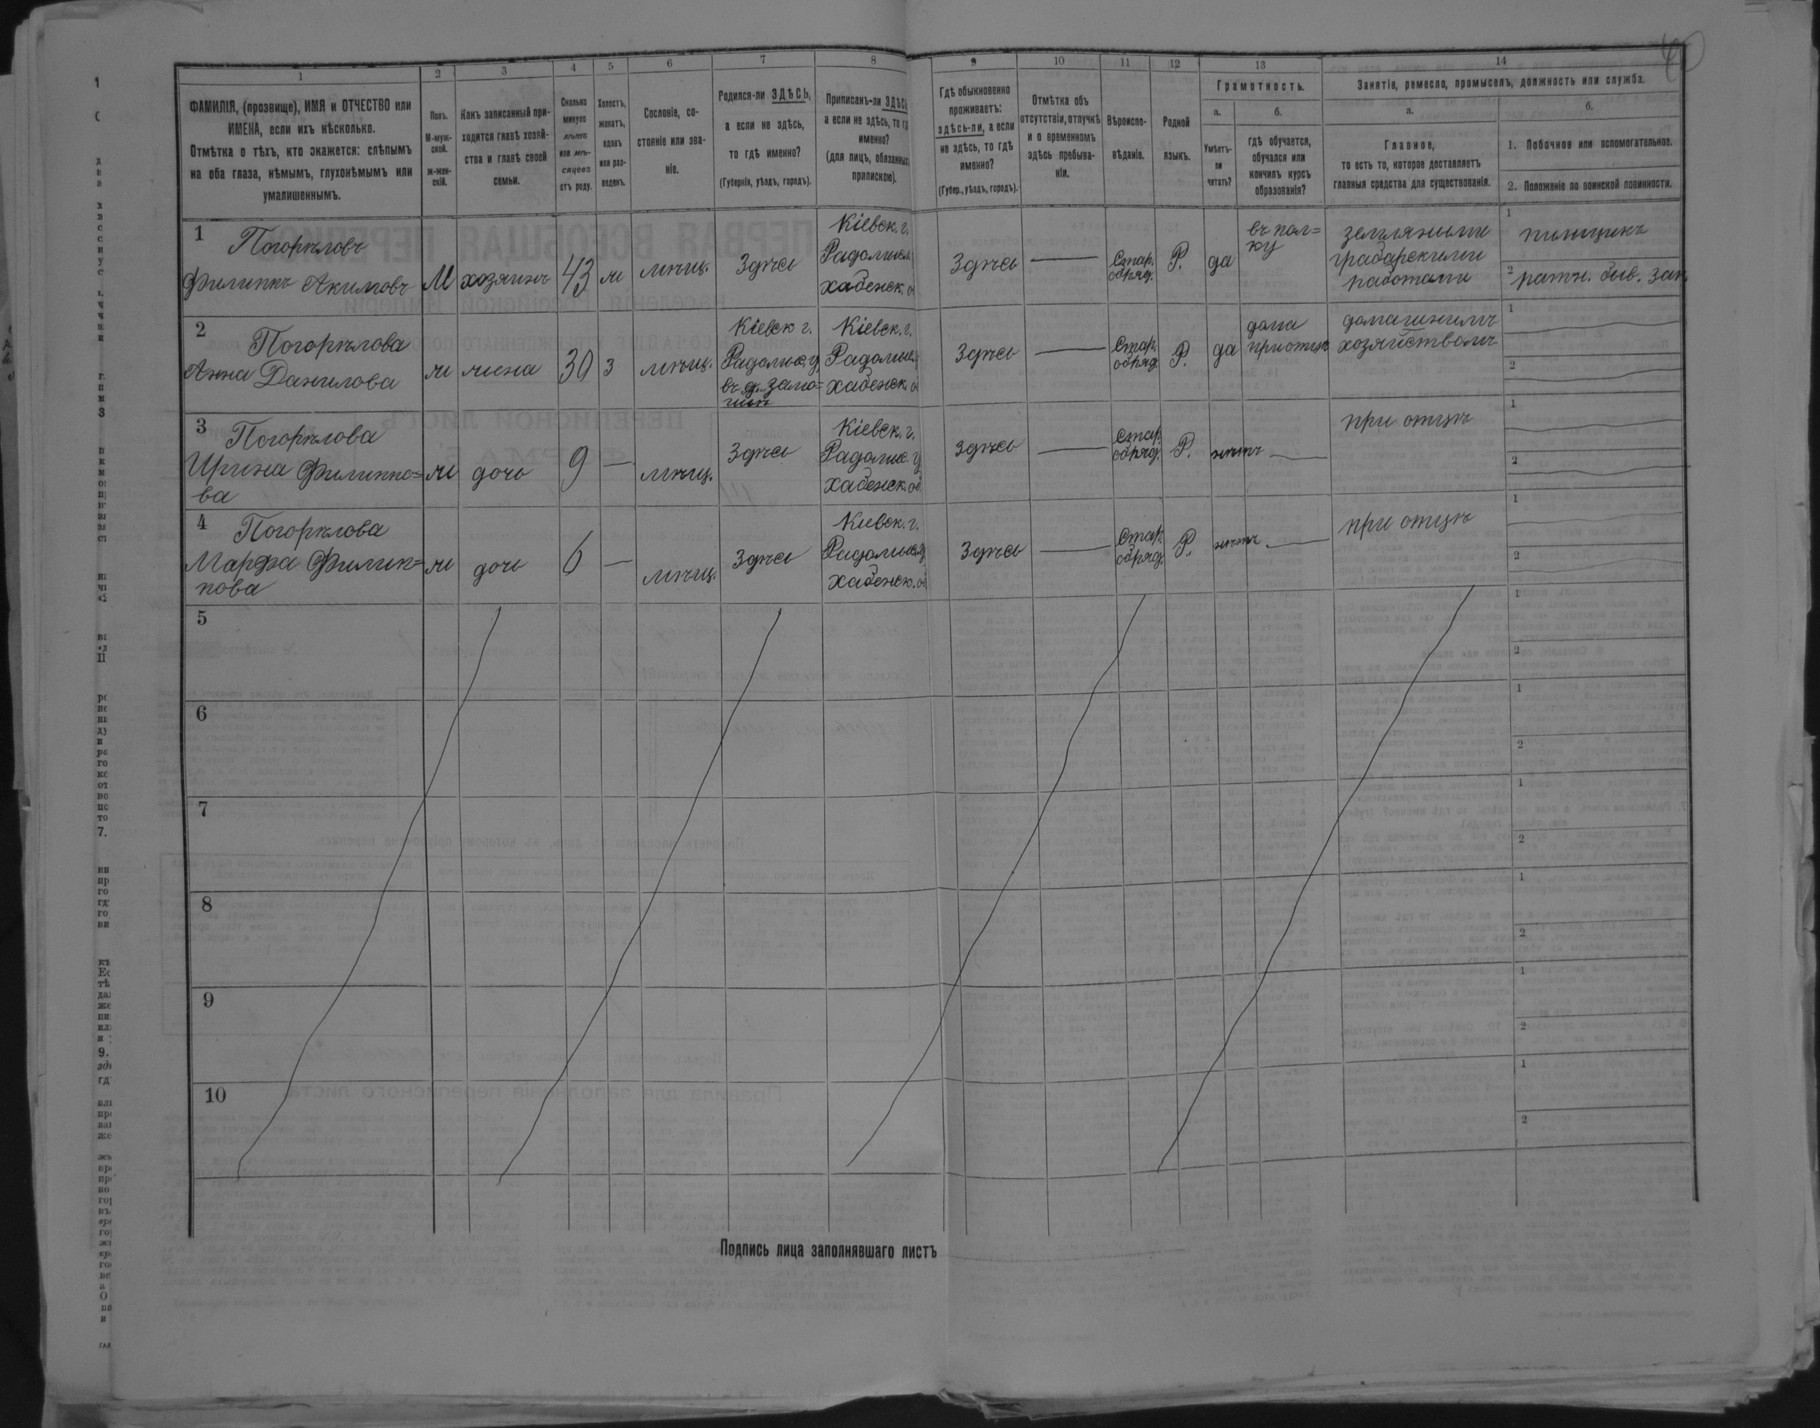 1 2 3 4 5 6 7 8 9 10 11 12 13 14
ФАМИЛІЯ, (прозвище), ИМЯ и ОТЧЕСТВО или
ИМЕНА, если ихъ нѣсколько.
Отмѣтка о тѣхъ, кто окажется: слѣпымъ
на оба глаза, нѣмымъ, глухонѣмымъ или
умалишеннымъ.
Полъ.
М-муж-
ской.
Ж-жен-
скій.
Какъ записанный при-
ходится главѣ хозяй-
ства и главѣ своей
семьи.
Сколько
минуло
лѣтъ
или мѣ-
сяцевъ
отъ роду.
Холостъ,
женатъ,
вдовъ
или раз-
веденъ.
Сословіе, со-
стояніе или зва-
ніе.
Родился-ли ЗДѢСЬ,
а если не здѣсь,
то гдѣ именно?
(Губернія, уѣздъ, городъ).
Приписанъ-ли ЗДѢСЬ
а если не здѣсь, то гдѣ
именно?
(для лицъ, обязанныхъ
припискою).
Гдѣ обыкновенно
проживаетъ:
здѣсь-ли, а если
не здѣсь, то гдѣ
именно?
(Губер., уѣздъ, городъ).
Отмѣтка объ
отсутствіи, отлучкѣ
и о временномъ
здѣсь пребыва-
ніи.
Вѣроиспо-
вѣданіе.
Родной
языкъ.
Грамотность.
а.
Умѣетъ-
ли
читать?
б.
гдѣ обучается,
обучался или
кончилъ курсъ
образованія?
Занятіе, ремесло, промыселъ, должность или служба.
а.
Главное,
то есть то, которое доставляетъ
главныя средства для существованія.
б.
1. Побочное или вспомогательное.
2. Положеніе по воинской повинности.
1
Погорѣловъ
Филиппъ Акимовъ
М
хозяинъ
43
ж
мѣщ.
Здѣсь
Кіевск. г.
Радомысл
хабенск. о
Здѣсь
Стар.
обряд.
Р.
да
въ пол=
ку
земляными
грабарскими
работами
1 пильщикъ
2 ратн. быв. зап
2
Погорѣлова
Анна Данилова
ж
жена
30
з
мѣщ.
Кіевск г.
Радомыс у,
Кіевск. г.
Радомыс
хабенск. о
Здѣсь
Стар.
обряд
Р.
да
дома
при отцѣ
домашнимъ
хозяйствомъ
1
2
3
Погорѣлова
Ирина Филиппо=
ва
ж
дочь
9
—
мѣщ.
Здѣсь
Кіевск. г.
Радомыс. у
хабенск. об
Здѣсь
Стар.
обряд.
Р.
нѣтъ —
при отцѣ
1
2
4
Погорѣлова
Марфа Филип=
пова
ж
дочь
6
—
мѣщ.
Здѣсь
Кіевск. г.
Радомыс у
хабенск. об
Здѣсь
Стар.
обряд.
Р.
нѣтъ —
при отцѣ
1
2
5
1
2
6
1
2
7
1
2
8
1
2
9
1
2
10
1
2
Подпись лица заполнявшаго листъ